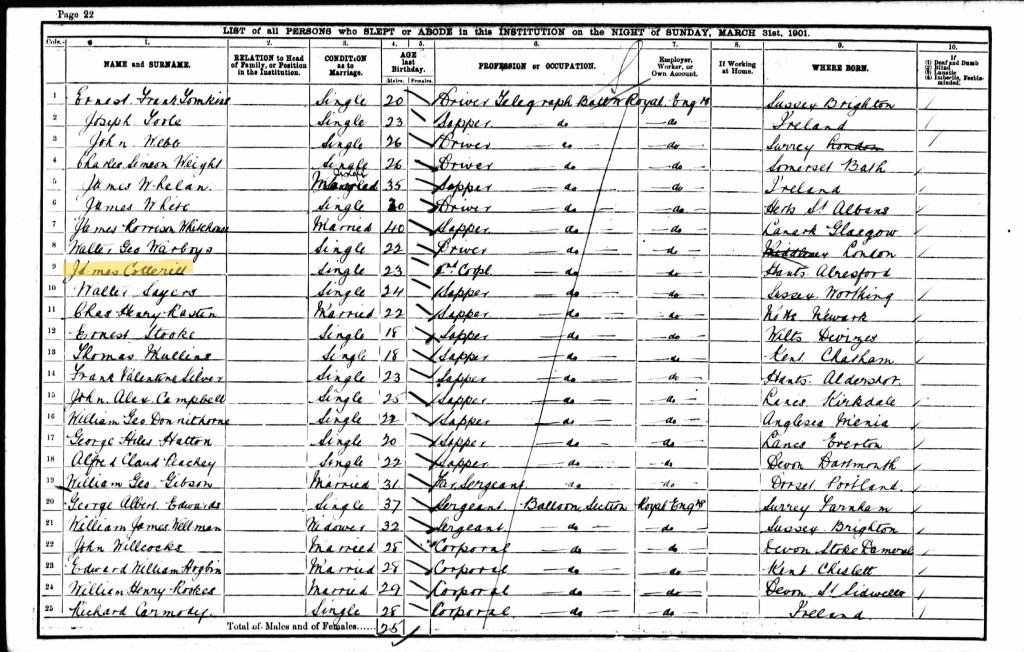 Page 22
LIST of all PERSONS who SLEPT or ABODE in this INSTITUTION on the NIGHT of SUNDAY, MARCH 31st, 1901.
Cols. 1. 2. 3. 4. 5. 6. 7. 8. 9. 10.
NAME and SURNAME. RELATION to Head of Family, or Position in the Institution. CONDITION as to Marriage. AGE last Birthday. Males. Females. PROFESSION or OCCUPATION. Employer, Worker, or Own Account. If Working at Home. WHERE BORN. If (1) Deaf and Dumb (2) Blind (3) Lunatic (4) Imbecile, Feeble-minded.
1 Ernest Frank Tomkins Single 20 Driver Telegraph Battn Royal Engrs Sussex Brighton
2 Joseph Toole Single 23 Sapper do do Ireland
3 John Webb Single 26 Driver do do Surrey London
4 Charles Simeon Weight Single 26 Driver do do Somerset Bath
5 James Whelan Single Married 35 Sapper do do Ireland
6 James White Single 20 Driver do do Herts St Albans
7 James Morrison Whitehouse Married 40 Sapper do do Lanark Glasgow
8 Walter Geo Warboys Single 22 Driver do do Middlesex London
9 James Cotterill Single 23 2nd Corpl do do Hants Alresford
10 Walter Sayers Single 24 Sapper do do Sussex Worthing
11 Chas Henry Married 22 Sapper do do Notts Newark
12 Ernest Stooke Single 18 Sapper do do Wilts Devizes
13 Thomas Mullins Single 18 Sapper do do Kent Chatham
14 Frank Valentine Silver Single 23 Sapper do do Hants Aldershot
15 John Alex Campbell Single 25 Sapper do do Lancs Kirkdale
16 William Geo Donnithorne Single 22 Sapper do do Anglesea Menia
17 George Hiles Hatton Single 20 Sapper do do Lancs Everton
18 Alfred Claud Peachey Single 22 Sapper do do Devon Dartmouth
19 William Geo. Gibson Married 31 Far Sergeant do do Dorset Portland
20 George Albert Edwards Single 37 Sergeant Balloon Section Royal Engrs Surrey Farnham
21 William James Wellman Widower 32 Sergeant do do Sussex Brighton
22 John Willcocks Married 28 Corporal do do Devon Stoke Dameral
23 Edward William Hogbin Married 28 Corporal do do Kent Chislett
24 William Henry Rookes Married 29 Corporal do do Devon St Sidwells
25 Richard Carmody Single 28 Corporal do do Ireland
Total of Males and of Females...... 25